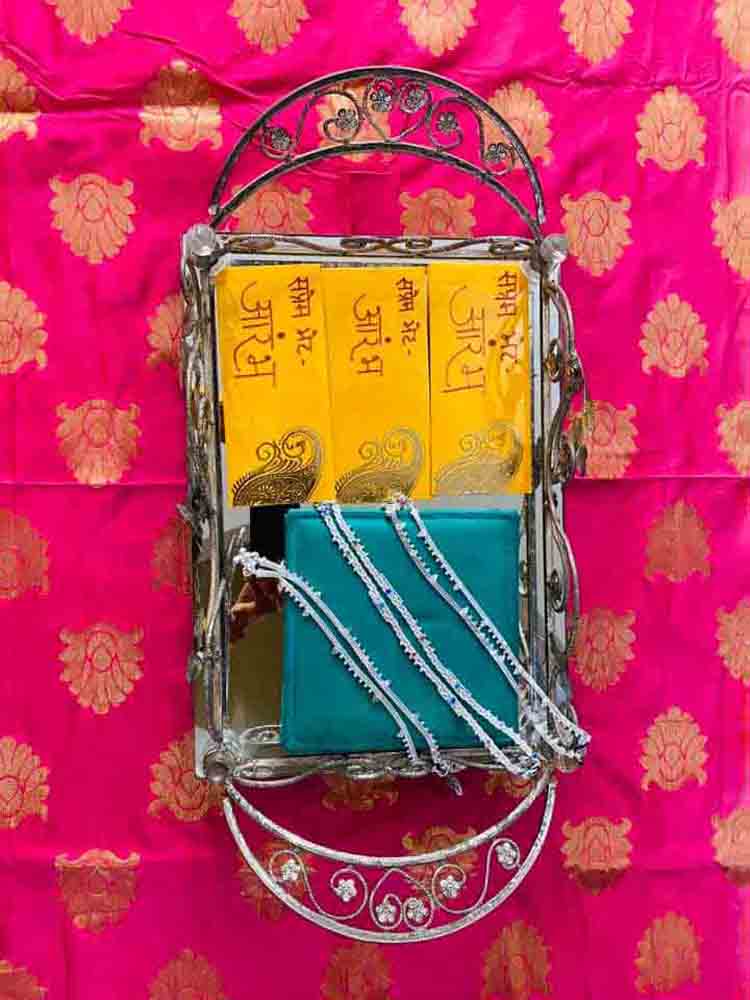 सप्रेम भेंट-
आरंभ
सप्रेम भेंट-
आरंभ
सप्रेम भेंट-
आरंभ